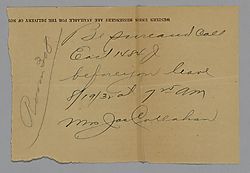 WESTERN UNION MESSENGERS ARE AVAILABLE FOR THE DELIVERY OF NOT
Room 308
Be sure and Call
East 1484 J
before you leave
8/19/32 at 7 AM
Mrs Jas Callahan